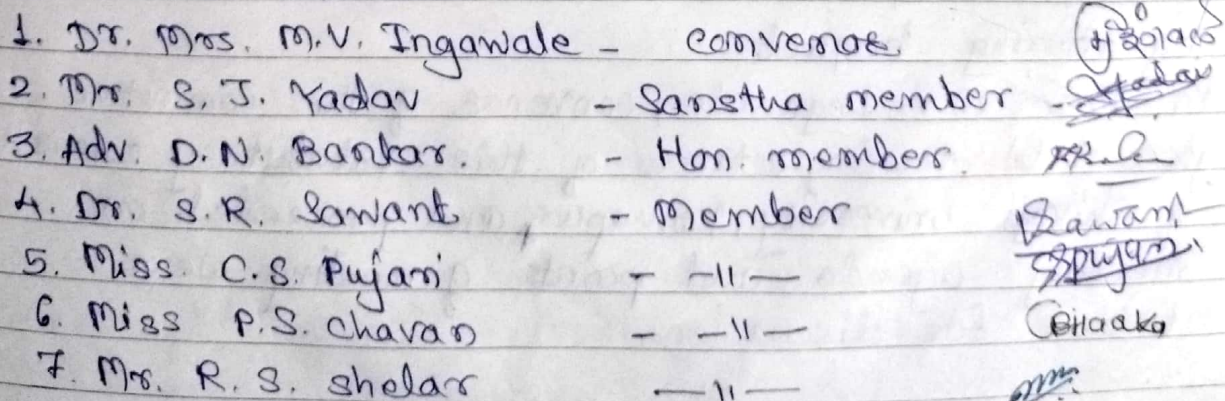 1. Dr. Mrs. M.V. Ingawale - convenor
2. Mr. S. J. Yadav - Sanstha member - Yadav
3. Adv. D.N. Bankar. - Hon. member.
4. Dr. S.R. Sawant - Member Sawant
5. Miss C.S. Pujari - -11- Cspujari
6. Miss P.S. Chavan - -11-
7. Mr. R. S. shelar -11-